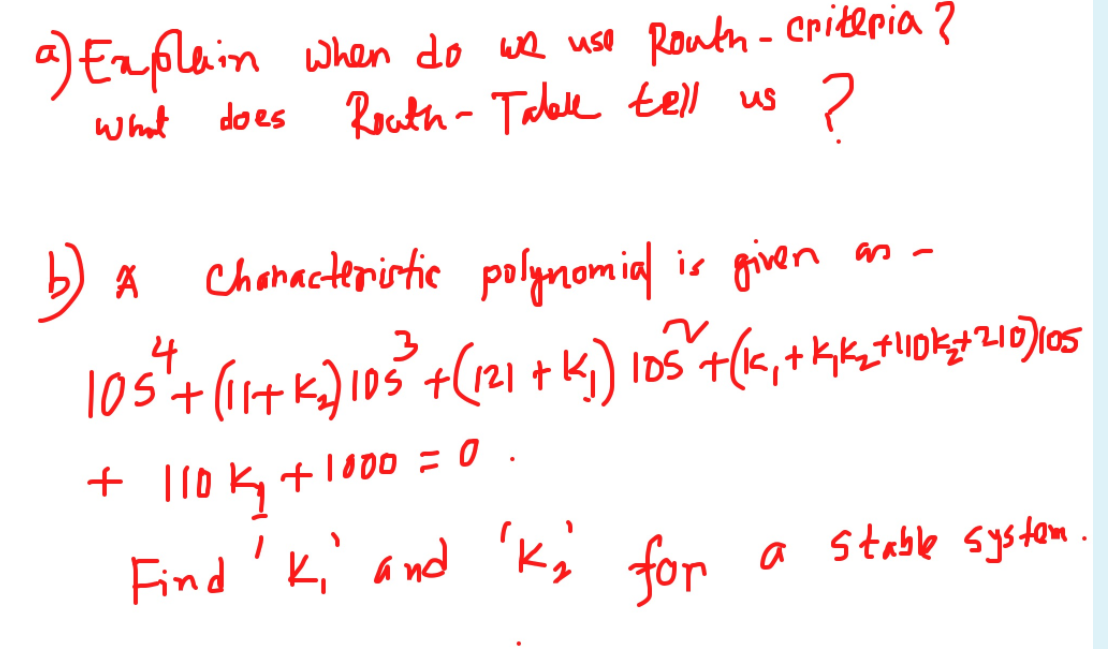 a) Explain when do we use Routh-criteria?
what does Routh-Table tell us?
b) A characteristic polynomial is given as -
10s⁴ + (11 + K₂) 10s³ + (121 + K₁) 10s² + (K₁ + K₁K₂ + 110K₂ + 210) 10s
+ 110 K₁ + 1000 = 0.
Find 'K₁' and 'K₂' for a stable system.